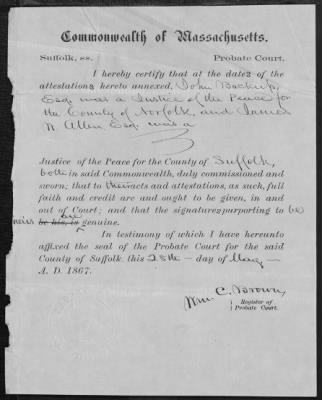 Commonwealth of Massachusetts.
Suffolk, ss. Probate Court.
I hereby certify that at the dates of the
attestations hereto annexed, John Backup,
Esq. was a Justice of the Peace for
the County of Norfolk, and James
W. Allen Esq. was a
Justice of the Peace for the County of Suffolk,
both in said Commonwealth, duly commissioned and
sworn; that to their acts and attestations, as such, full
faith and credit are and ought to be given, in and
out of Court; and that the signatures purporting to be
theirs are
be his, is genuine.
In testimony of which I have hereunto
affixed the seal of the Probate Court for the said
County of Suffolk, this 28th day of May
A. D. 1867.
Wm C. Brown,
Register of
Probate Court.